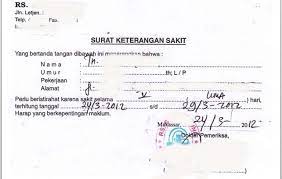 RS.
Jln. Letjen. :
Telp. / Fax.
SURAT KETERANGAN SAKIT
Yang bertanda tangan dibawah ini menerangkan bahwa :
N a m a : Tn.
U m u r : th; L / P
Pekerjaan :
Alamat : Jl.
Perlu beristirahat karena sakit selama V ( LIMA ) hari,
terhitung tanggal 24/3-2012 s/d 29/3-2012
Harap yang berkepentingan maklum.
Makassar, 24/3- 2012
Dokter Pemeriksa,